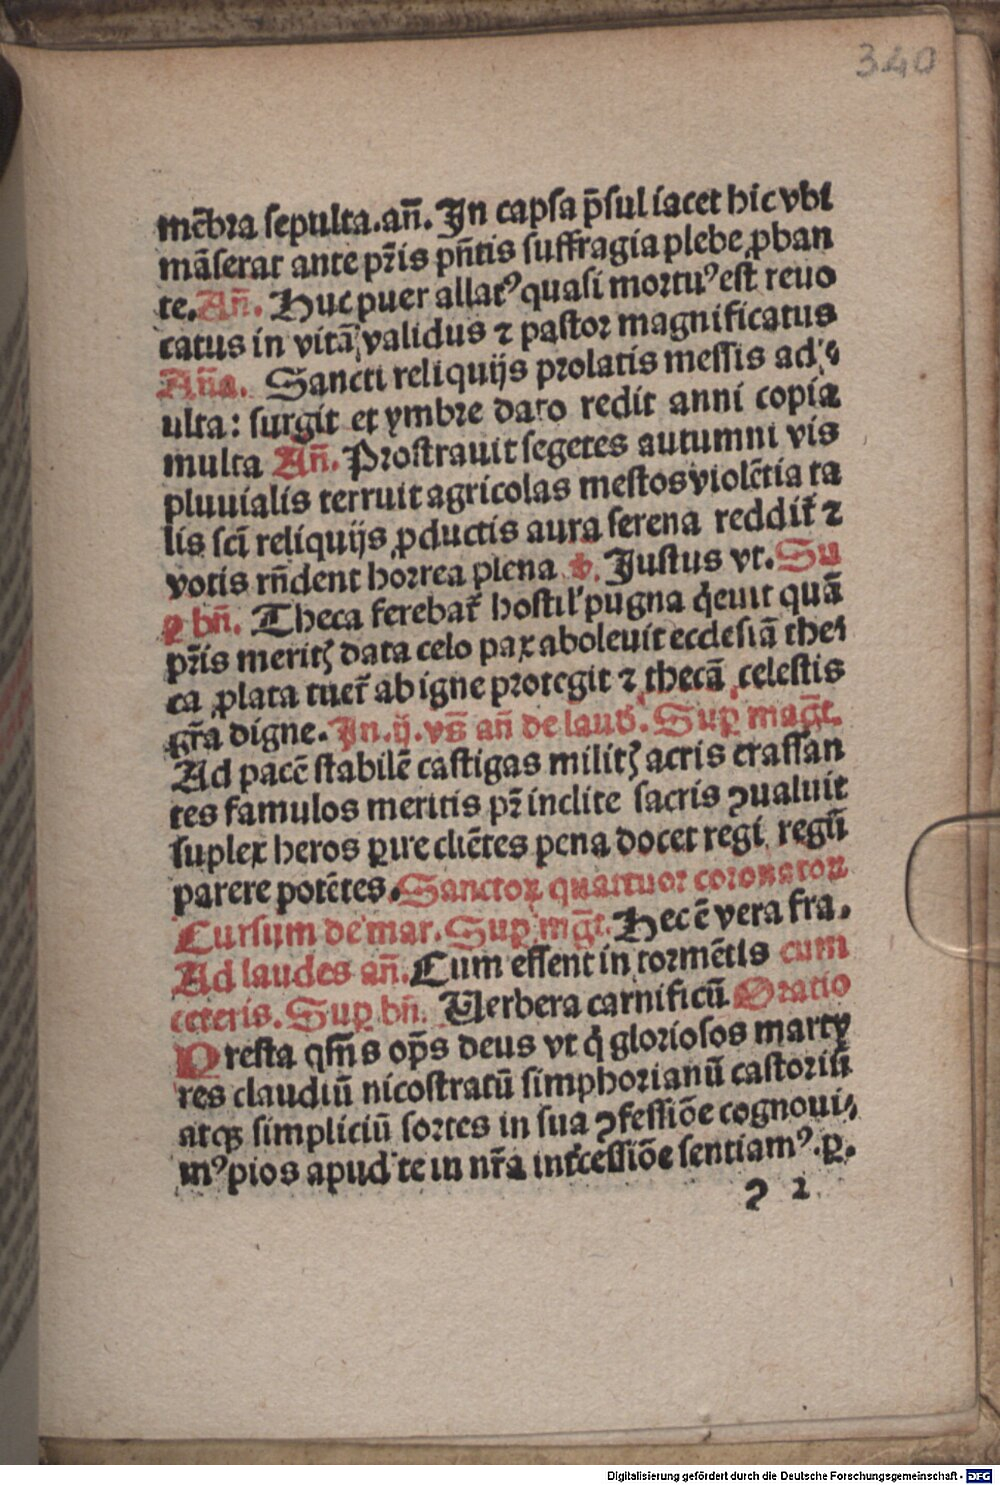 340
mēbra sepulta.an̄. In capsa p̄sul iacet hic vbi
māserat ante pr̄is pn̄tis suffragia plebe ꝓban
te. An̄. Huc puer allatꝰ quasi mortuꝰ est reuo
catus in vitā validus ⁊ pastor magnificatus
An̄a. Sancti reliquijs prolatis messis ad
ulta: surgit et ymbre dato redit anni copia
multa An̄. Prostrauit segetes autumni vis
pluuialis terruit agricolas mestos violētia ta
lis sci̅ reliquijs ꝓductis aura serena reddit̄ ⁊
votis rn̄dent horrea plena ꝟ. Iustus vt. Su
ꝑ bn̄. Theca ferebat̄ hostil' pugna q̄euit quā
pr̄is meritꝫ data celo pax aboleuit ecclesiā the
ca ꝓlata tuet̄ ab igne protegit ⁊ thecā celestis
gr̄a digne. In .ij. vs̄ an̄ de laud̄. Suꝑ mag̅t.
Ad pacē stabilē castigas militꝫ acris crassan
tes famulos meritis pr̄ inclite sacris ꝯualuit
suplex heros ꝑire cliētes pena docet regi regū
parere potētes. Sanctoꝝ quattuor coronatoꝝ
Cursum de mar. Suꝑ mg̅t. Hec ē vera fra.
Ad laudes an̄. Cum essent in tormētis cum
ceteris. Suꝑ bn̄. Uerbera carnificū Oratio
Presta qs̄m̄s op̄s deus vt q̄ gloriosos marty
res claudiū nicostratū simphorianū castoriū
atqꝫ simpliciū fortes in sua ꝯfessiōe cognoui
mꝰ pios apud te in nr̄a int̄cessiōe sentiamꝰ. ꝑ.
ꝯ 2
Digitalisierung gefördert durch die Deutsche Forschungsgemeinschaft - DFG